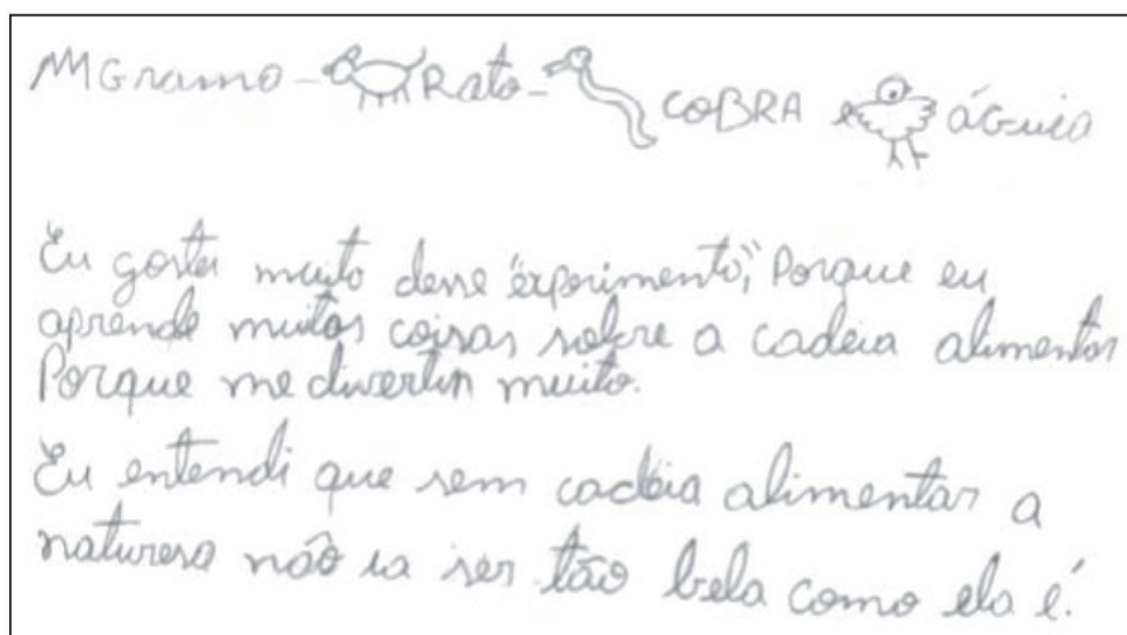 Grama - Rato - COBRA águia
Eu gostei muito desse "experimento", Porque eu
aprende muitas coisas sobre a cadeia alimentar
Porque me divertir muito.
Eu entendi que sem cadeia alimentar a
naturesa não ia ser tão bela como ela é.